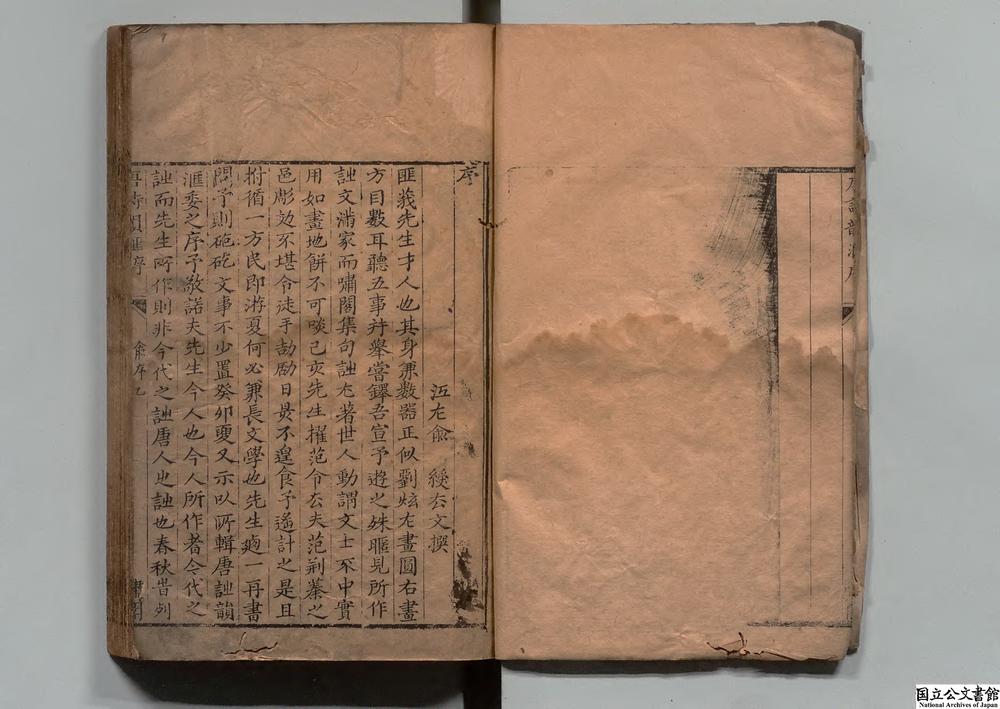 唐詩韻滙序
序
江左俞 綏去文撰
匪莪先生才人也其身兼數器正似劉炫左畫圓右畫
方目數耳聽五事并舉嘗鐸吾宣予遊之殊暱見所作
詩文滿家而嘯閣集句詩尤著世人動謂文士不中實
用如畫地餅不可啖己亥先生擢范令去夫范荆蓁之
邑彫攰不堪令徒手劼劚日昃不遑食予遙計之是且
拊循一方民即游夏何必兼長文學也先生廼一再書
問予則矻矻文事不少置癸卯夏又示以所輯唐詩韻
滙委之序予敬諾夫先生今人也今人所作者今代之
詩而先生所作則非今代之詩唐人之詩也春秋昔列
唐詩韻匯序 俞序 乙
国立公文書館
National Archives of Japan